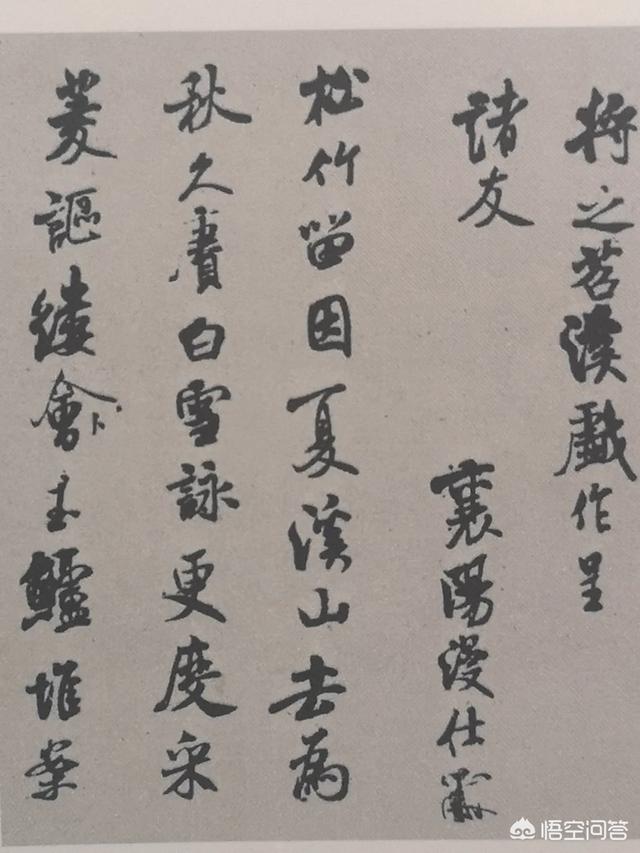 將之苕溪戲作呈
諸友 襄陽漫仕黻
松竹留因夏溪山去為
秋久賡白雪詠更度采
菱謳縷會玉鱸堆案
悟空问答